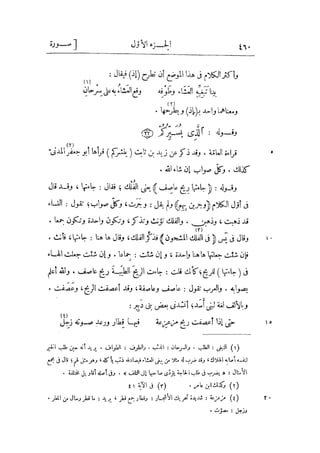 ٤٦٠ الجزء الأول [ سورة
وأكثر الكلام فى هذا الموضع أن تطرح (إذ) فيقال :
بينا تبغّيه العشاء وطوفه وقع العشاء به على سرحان (١)
ومعناهما واحد بـ(إذ) وبطرحها .
وقـوله : الَّذِى يُسَيِّرُكُمْ (٢٢)
٥ قراءة العامّة . وقد ذكر عن زيد بن ثابت ( ينشركم ) قرأها أبو جعفر المدنىّ (٢)
كذلك . وكلّ صواب إن شاء الله .
وقوله : ( جاءتها ريح عاصف ) يعنى الفُلْك ؛ فقال : جاءتها ، وقد قال
فى أوّل الكلام ( وجرين بهم ) ولم يقل : وجرت ، وكلّ صواب ؛ تقول : النساء
قد ذهبت ، وذهبن . والفلك تؤنث وتذكر ، وتكون واحدة وتكون جمعا .
١٠ وقال فى يس ( فى الفلك المشحون ) فذكّر الفلك ، وقال ها هنا : جاءتها ، فأنث . (٣)
فإن شئت جعلتها هاهنا واحدة ، وإن شئت : جماعا . وإن شئت جعلت الهاء
فى ( جاءتها ) للريح ؛ كأنك قلت : جاءت الريحَ الطيّبةَ ريح عاصف . والله أعلم
بصوابه . والعرب تقول : عاصف وعاصفة ، وقد أعصفت الريح ، وعصفت .
وبالألف لغة لبنى أسد ؛ أنشدنى بعض بنى دبير :
١٥ حتى إذا أعصفت ريح مزعزعة فيهـا قطار ورعد صـوته زجل (٤)
(٢) وكذلك ابن عامر . (٣) فى الآية ٤١
٢٠ (٤) مزعزعة : شديدة تحريك الأشجار ؛ وقطار جمع قطر ، يريد : ما قطر وسال من المطر .
وزجل : مصوّت .